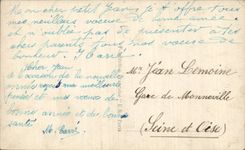 Mon cher petit Jean, je t'offre tous
mes meilleurs voeux de bonne année
et n'oublie pas de présenter à tes
chers parents tous mes voeux de
bonheur. H. Carré
Cher Jean
à l'occasion de la nouvelle
année reçois ma meilleure
et mes voeux de
bonne année et de bonne
santé.
M. Carré
Mr Jean Lemoine
Gare de Monneville
(Seine et Oise)